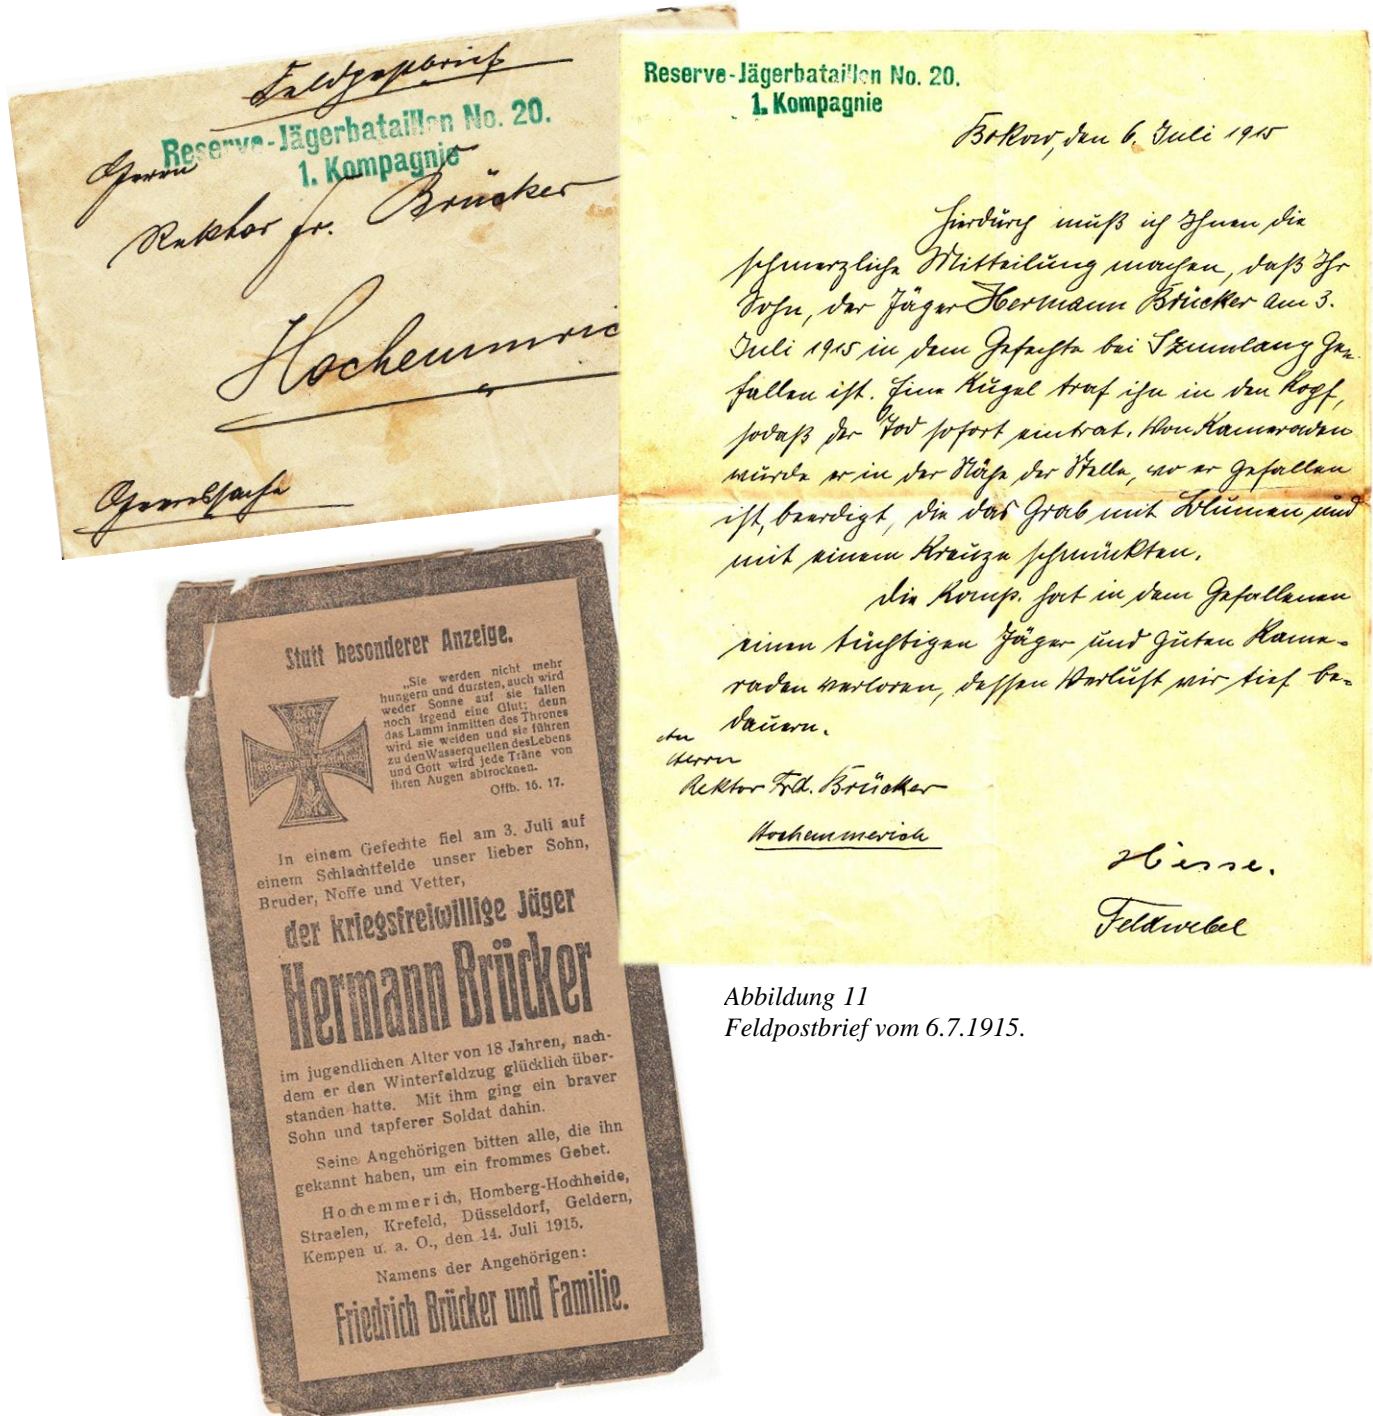 Feldpostbrief
Reserve-Jägerbataillon No. 20.
1. Kompagnie
Herrn
Rektor Fr. Brücker
Hochemmeric
Heeressache
Reserve-Jägerbataillon No. 20.
1. Kompagnie
Bokow, den 6. Juli 1915
Hierdurch muß ich Ihnen die
schmerzliche Mitteilung machen, daß Ihr
Sohn, der Jäger Hermann Brücker am 3.
Juli 1915 in dem Gefechte bei Szumlany ge-
fallen ist. Eine Kugel traf ihn in den Kopf,
sodaß der Tod sofort eintrat. Von Kameraden
wurde er in der Nähe der Stelle, wo er gefallen
ist, beerdigt, die das Grab mit Blumen und
mit einem Kreuze schmückten.
Die Komp. hat in dem Gefallenen
einen tüchtigen Jäger und guten Kame-
raden verloren, dessen Verlust wir tief be-
dauern.
An
Herrn
Rektor Frd. Brücker
Hochemmerich
Hesse.
Feldwebel
Statt besonderer Anzeige.
„Sie werden nicht mehr
hungern und dursten, auch wird
weder Sonne auf sie fallen
noch irgend eine Glut; denn
das Lamm inmitten des Thrones
wird sie weiden und sie führen
zu den Wasserquellen des Lebens
und Gott wird jede Träne von
ihren Augen abtrocknen.
Offb. 16. 17.
In einem Gefechte fiel am 3. Juli auf
einem Schlachtfelde unser lieber Sohn,
Bruder, Neffe und Vetter,
der kriegsfreiwillige Jäger
Hermann Brücker
im jugendlichen Alter von 18 Jahren, nach-
dem er den Winterfeldzug glücklich über-
standen hatte. Mit ihm ging ein braver
Sohn und tapferer Soldat dahin.
Seine Angehörigen bitten alle, die ihn
gekannt haben, um ein frommes Gebet.
Hochemmerich, Homberg-Hochheide,
Straelen, Krefeld, Düsseldorf, Geldern,
Kempen u. a. O., den 14. Juli 1915.
Namens der Angehörigen:
Friedrich Brücker und Familie.
Abbildung 11
Feldpostbrief vom 6.7.1915.